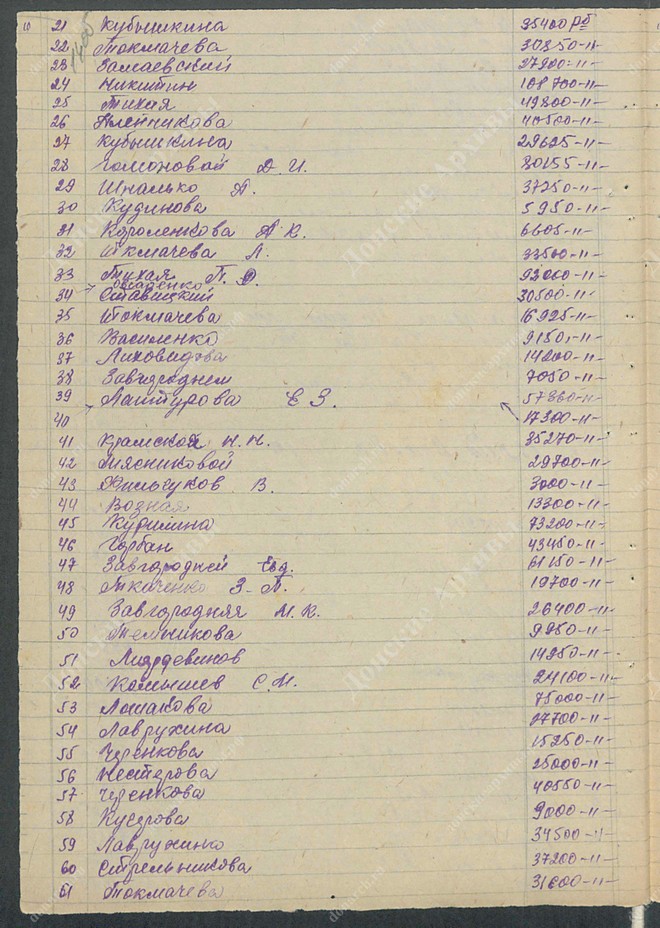 10 21 Кубышкина 35400 рб
22 Токмачева 30850-11-
23 Замаевский 27200-11-
24 Никитин 108700-11-
25 Тихая 49800-11-
26 Клейникова 40500-11-
27 Кубышкина 29625-11-
28 Гомоновой Д. И. 80155-11-
29 Шналько А. 37250-11-
30 Кудинова 5950-11-
31 Короленкова А К. 6605-11-
32 Токмачева Л. 33500-11-
33 Тихая П. О. 92000-11-
34 Ставицкий 30500-11-
35 Токмачева 16925-11-
36 Василенко 9150-11-
37 Лиховидова 14200-11-
38 Завгороднем 7050-11-
39 Лантурова Е З. 57860-11-
40 17300-11-
41 Крамской Н. Н. 35270-11-
42 Мясниковой 29700-11-
43 В. 3000-11-
44 Возная 13300-11-
45 73200-11-
46 Горбан 43450-11-
47 Завгородней Евд. 61150-11-
48 Ткаченко З. П. 19700-11-
49 Завгородняя М. К. 26400-11-
50 Темникова 9950-11-
51 14250-11-
52 Камышев С. И. 24100-11-
53 Лошакова 75000-11-
54 Лавружина 27700-11-
55 Черенкова 15250-11-
56 Нестерова 25000-11-
57 Черенкова 40550-11-
58 Кусерова 9000-11-
59 Лавружино 34500-11-
60 Стрельникова 37200-11-
61 Токмачева 31600-11-